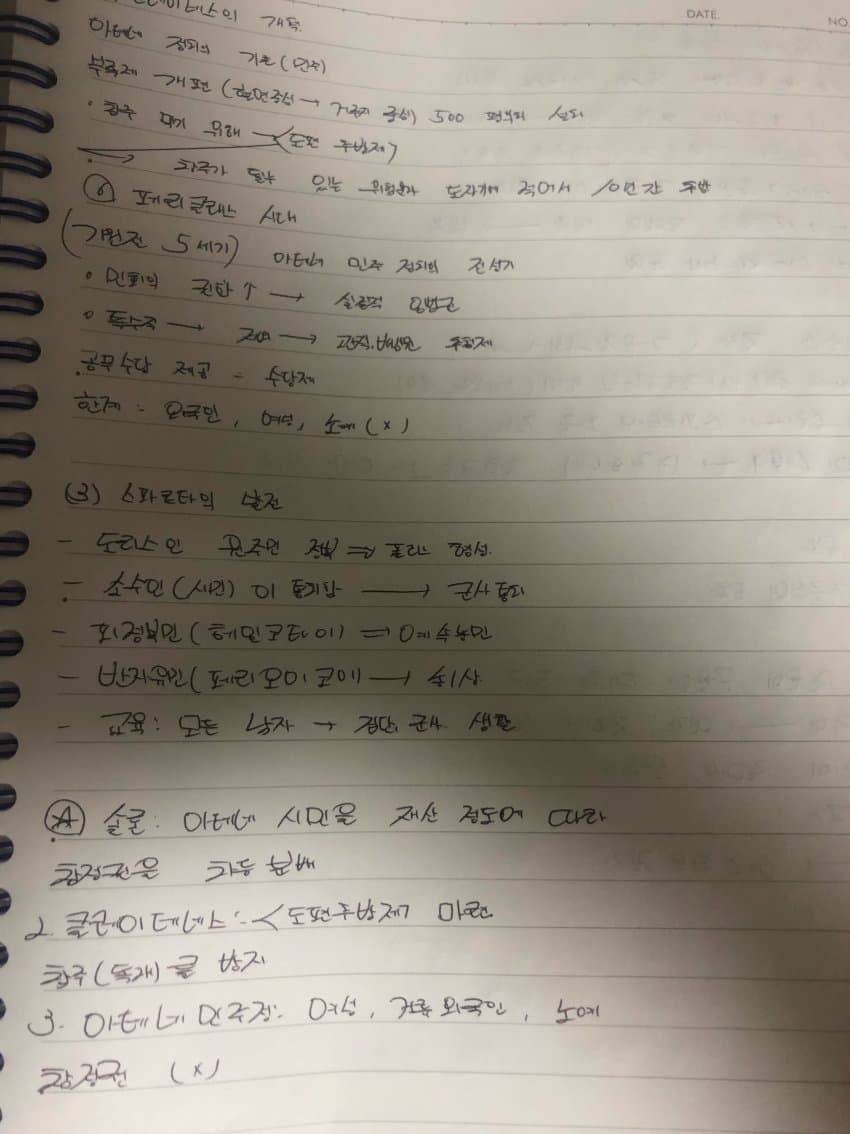 DATE.
NO
클레이스테네스의 개혁
아테네 정치의 기초 (민주)
부족제 개편 (혈연중심 → 거주지 중심) 500 평의회 설치
· 참주 막기 위해 → <도편 추방제>
→ 참주가 될 수 있는 위험분자 도자기에 적어서 10년간 추방
⑥ 페리클레스 시대
(기원전 5세기) 아테네 민주 정치의 전성기
· 민회의 권한 ↑ → 실질적 입법권
· 특수직 → 제외 → 관직, 배심원 추첨제
· 공무수당 제공 = 수당제
한계 : 외국인, 여성, 노예 (x)
(3) 스파르타의 발전
- 도리스인 원주민 정복 => 폴리스 형성.
- 소수민 (시민) 이 통치함 → 군사통치
- 피정복민 (헤일로타이) => 예속농민
- 반자유민 (페리오이코이) → 상
- 교육 : 모든 남자 → 집단, 군사 생활
Ⓐ 솔론 : 아테네 시민을 재산 정도에 따라
참정권을 차등 분배
2. 클레이테네스 : <도편추방제> 마련
참주 (독재) 를 방지
3. 아테네 민주정 : 여성, 거류 외국인, 노예
참정권 (x)